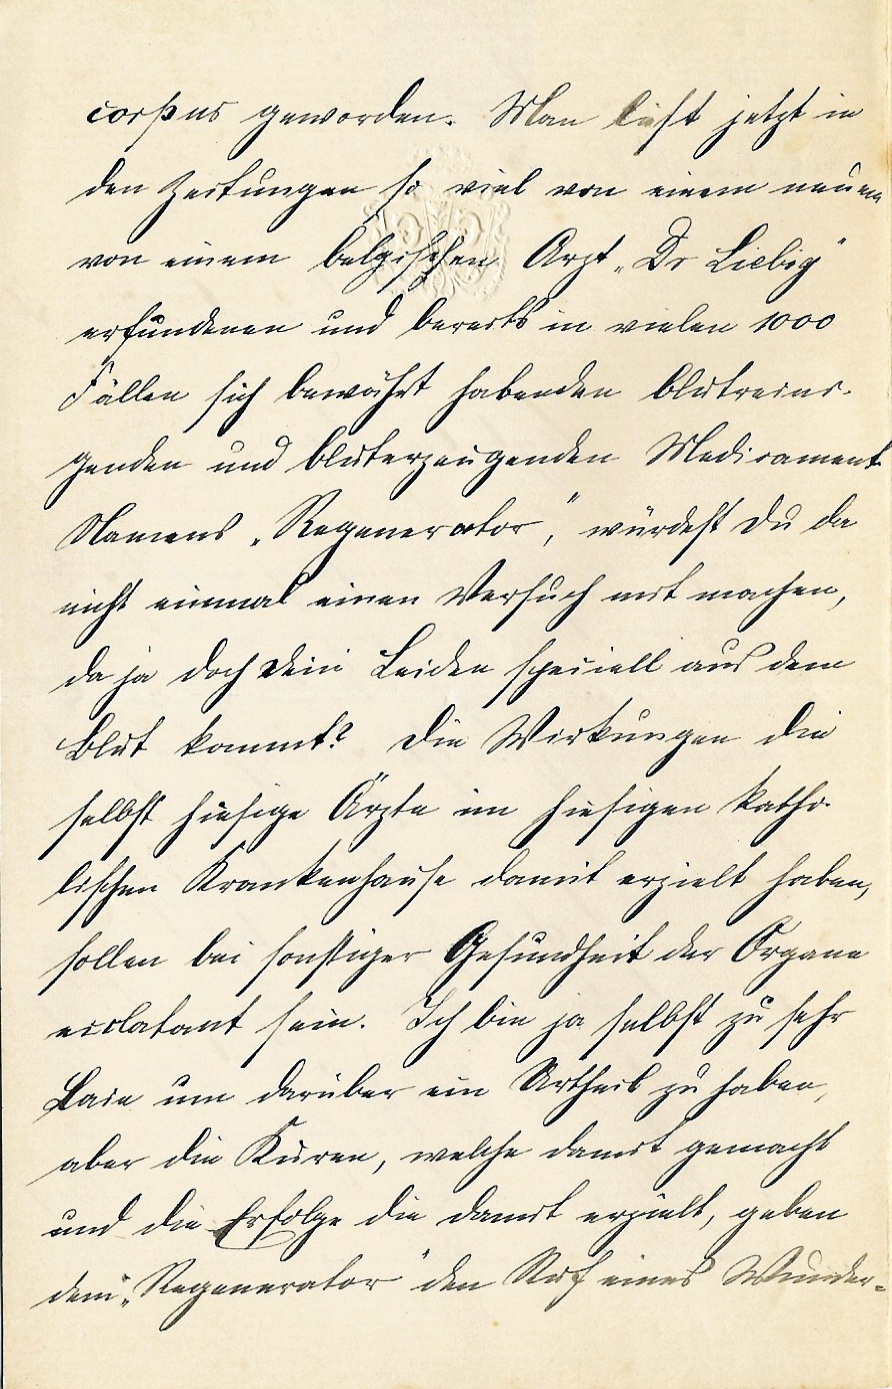 corpus geworden. Man liest jetzt in
den Zeitungen so viel von einem neuen
von einem belgischen Arzt „Dr Liebig"
erfundenen und bereits in vielen 1000
Fällen sich bewährt habenden blutreini-
genden und bluterzeugenden Medicament
Namens „Regenerator", würdest Du da
nicht einmal einen Versuch mit machen,
da ja doch Dein Leiden speciell aus dem
Blut kommt? Die Wirkungen die
selbst hiesige Ärzte im hiesigen katho-
lischen Krankenhause damit erzielt haben,
sollen bei sonstiger Gesundheit der Organe
ecclatant sein. Ich bin ja selbst zu sehr
Laie um darüber ein Urtheil zu haben,
aber die Kuren, welche damit gemacht
und die Erfolge die damit erzielt, geben
dem „Regenerator" den Ruf eines Wunder-